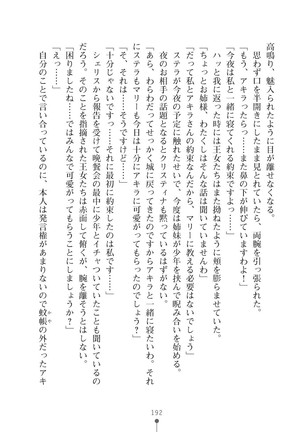 高鳴り、魅入られたように目が離せなくなる。
思わず口を半開きにしていたら、両腕を引っ張られた。
「もう、アキラったら……また鼻の下が伸びてますよ！」
「今夜は私と一緒に寝てくれる約束ですよ」
ハッと我に返った時には王女たちはまた拗ねたように頬を膨らませていた。
「ちょっとお姉様、わたくしそんな話は聞いていませんわ」
「だって私とアキラさんの約束なんですから、マリーに教える必要はないでしょう」
ステラが今夜の予定に触れたせいで、今度は姉妹が少年を挟んで睨み合いを始める。
夜のお相手の話題となるとクリスティナも黙っているはずがない。
「あら、わらわだってせっかく城に戻ってきたのだからアキラと一緒に寝たいわ。それにステラもマリーも今日は十分にアキラに可愛がってもらったのでしょう？」
「そ、それは……そうですけど……」
「十分じゃないですっ。それに最初に約束したのは私です……」
シェリスから報告を受けたのか、晩餐会の最中に少年とイチャついていたことも聞いているのだろう。そのことを指摘された王女たちは赤面して俯くが、腕を離そうとはしない。
「困りましたね……ではみんなで可愛がってもらうことにしましょうか？」
「えっ……」
自分のことで言い合っているのに、本人は発言権があまりないので蚊帳の外だったアキ
192